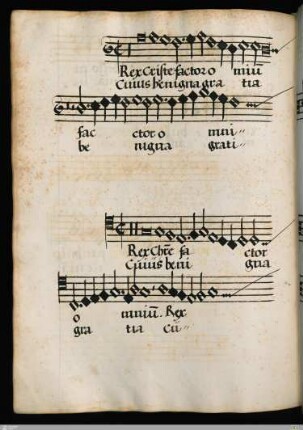 Rex Criste factor o mniũ
Cuius benigna gra tia
fac ctor o mni
be nigna grati
Rex Chr̃e fa ctor
Cuius beni gna
o mniũ. Rex
gra tia Cu